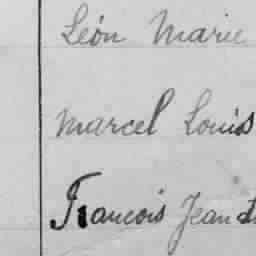 Léon Marie
Marcel Louis
Francois Jean